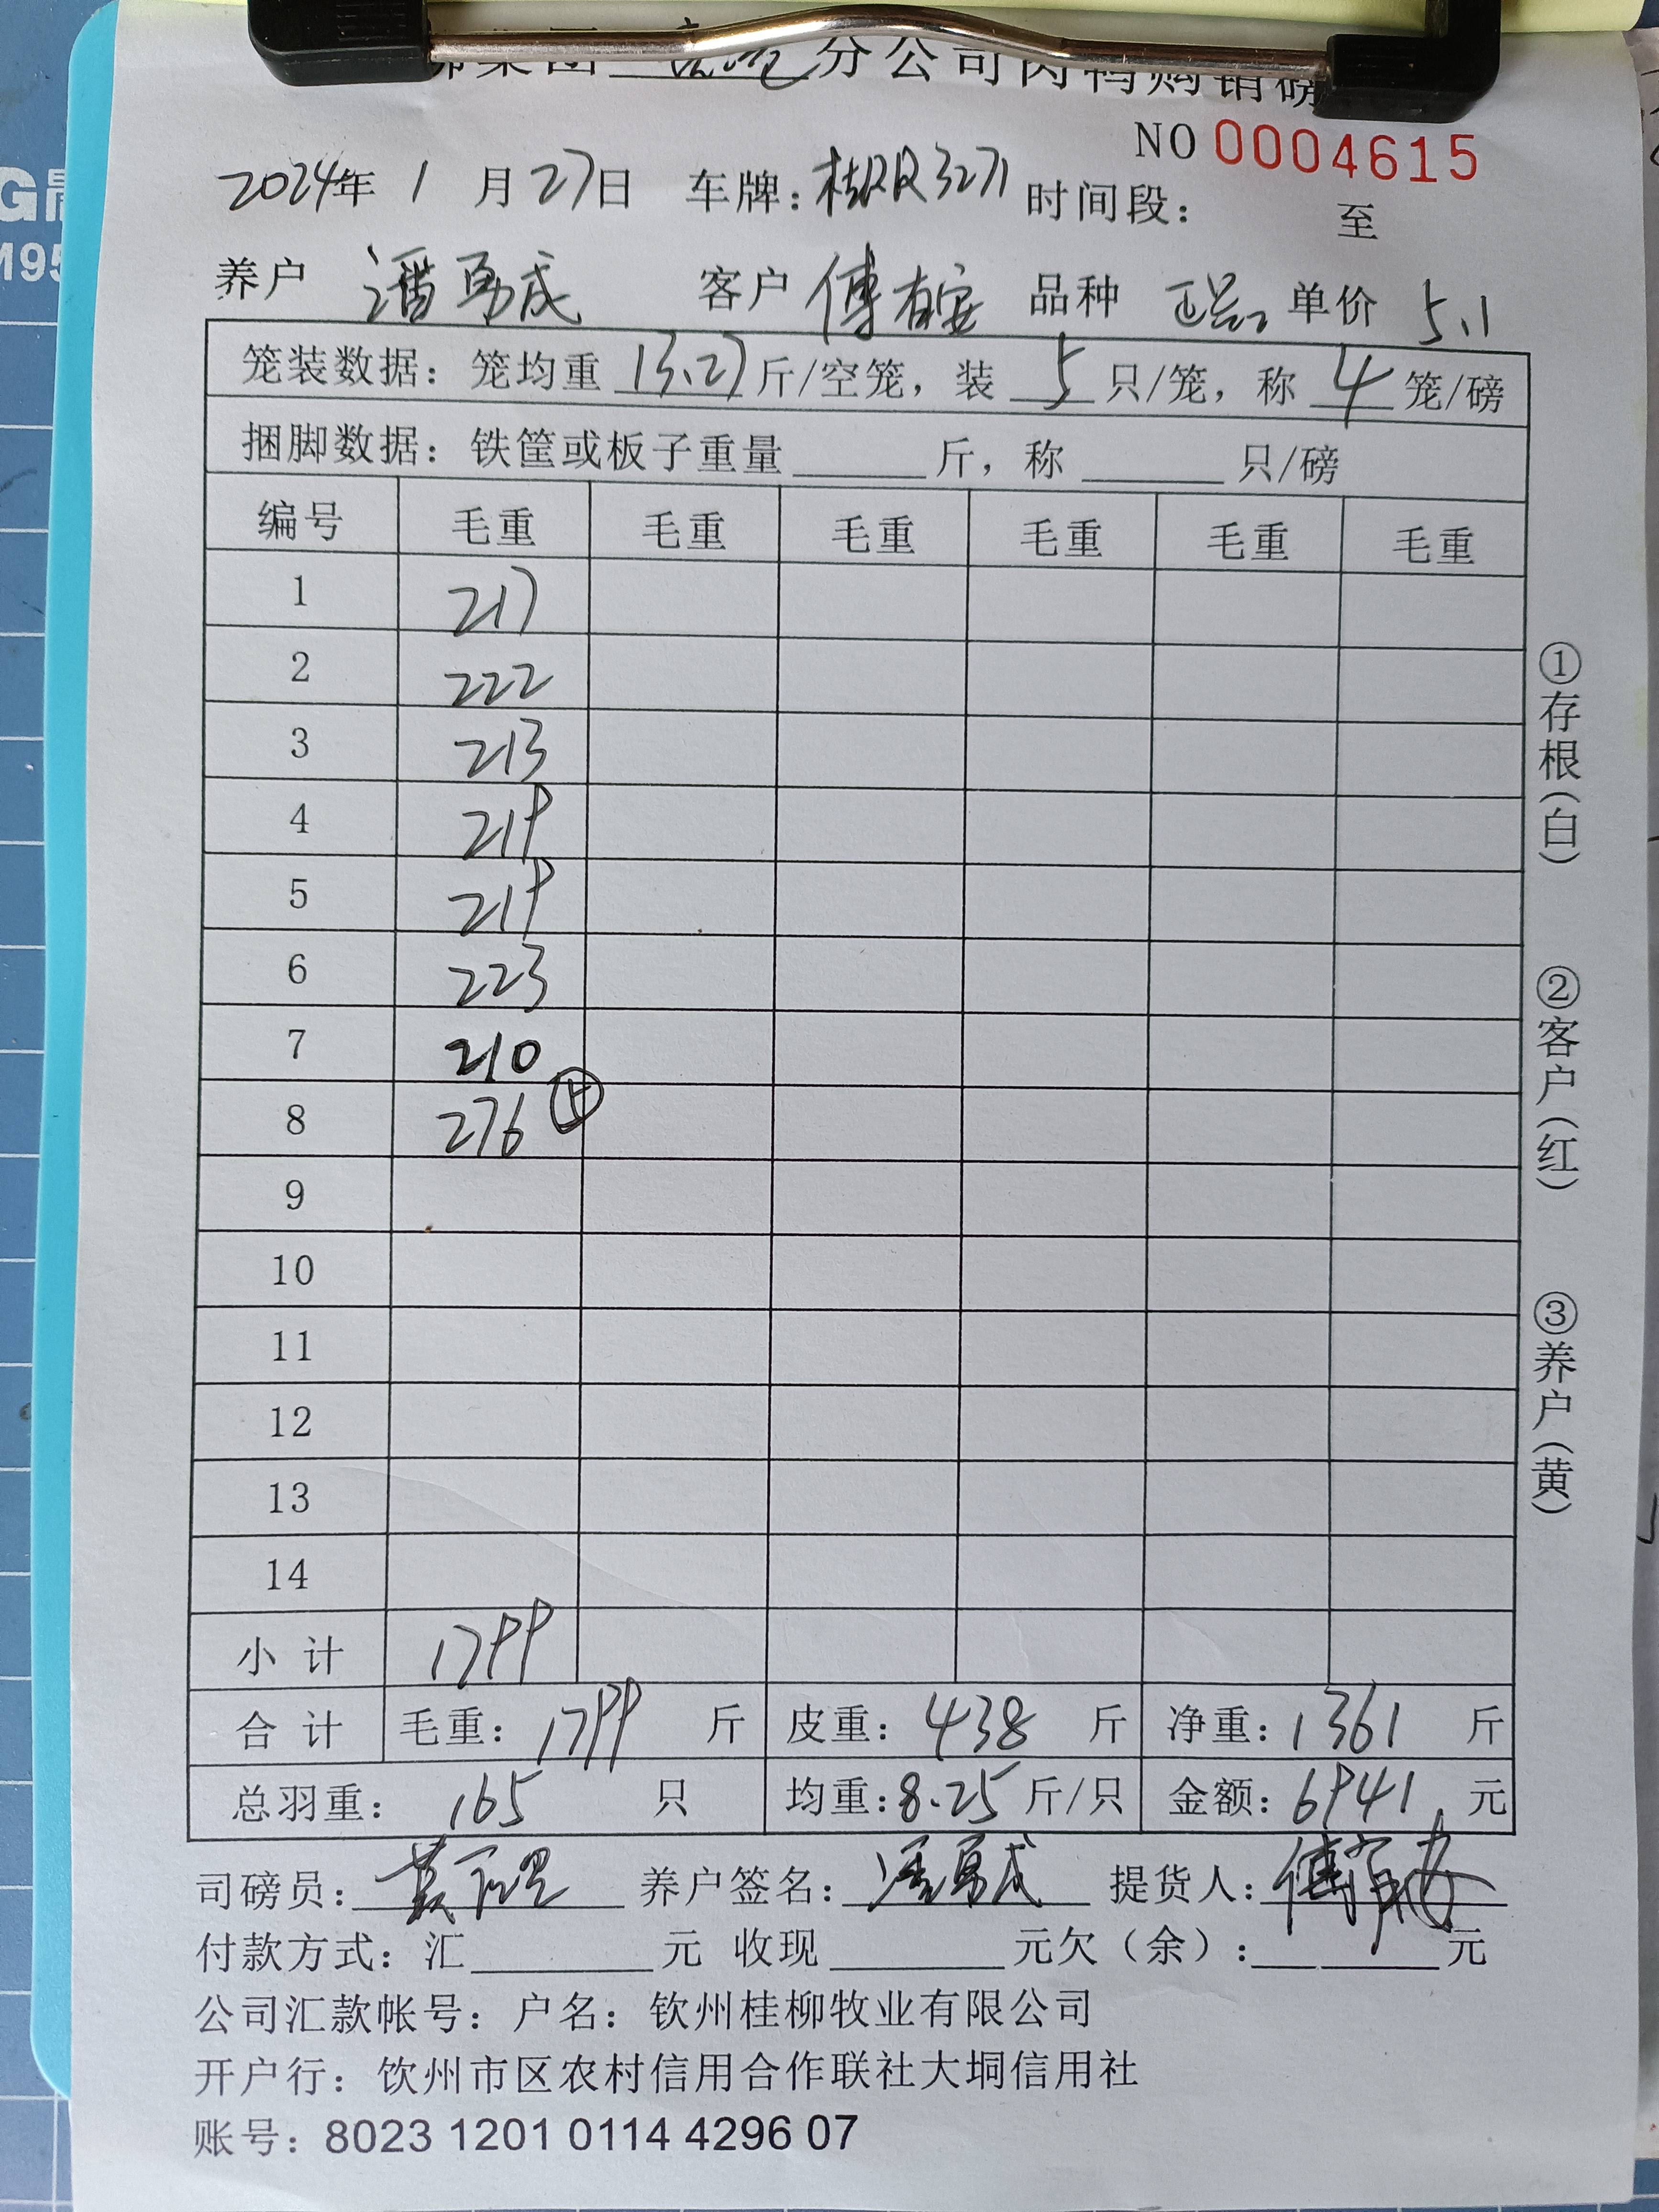 分公司肉鸭购销磅
NO 0004615
2024年 1 月 27日 车牌: 3271 时间段: 至
养户 潘勇成 客户 傅 品种 正品 单价 5.1
笼装数据: 笼均重 13.27 斤/空笼, 装 5 只/笼, 称 4 笼/磅
捆脚数据: 铁筐或板子重量______斤, 称______只/磅
编号 毛重 毛重 毛重 毛重 毛重 毛重
1 217
2 222
3 213
4 219
5 219
6 223
7 210
8 276 ⑤
9
10
11
12
13
14
小 计 1799
合 计 毛重: 1799 斤 皮重: 438 斤 净重: 1361 斤
总羽重: 165 只 均重: 8.25 斤/只 金额: 6941 元
司磅员: 黄 养户签名: 潘勇成 提货人: 傅
付款方式: 汇______元 收现______元欠(余):______元
公司汇款帐号: 户名: 钦州桂柳牧业有限公司
开户行: 钦州市区农村信用合作联社大垌信用社
账号: 8023 1201 0114 4296 07
①存根(白)
②客户(红)
③养户(黄)